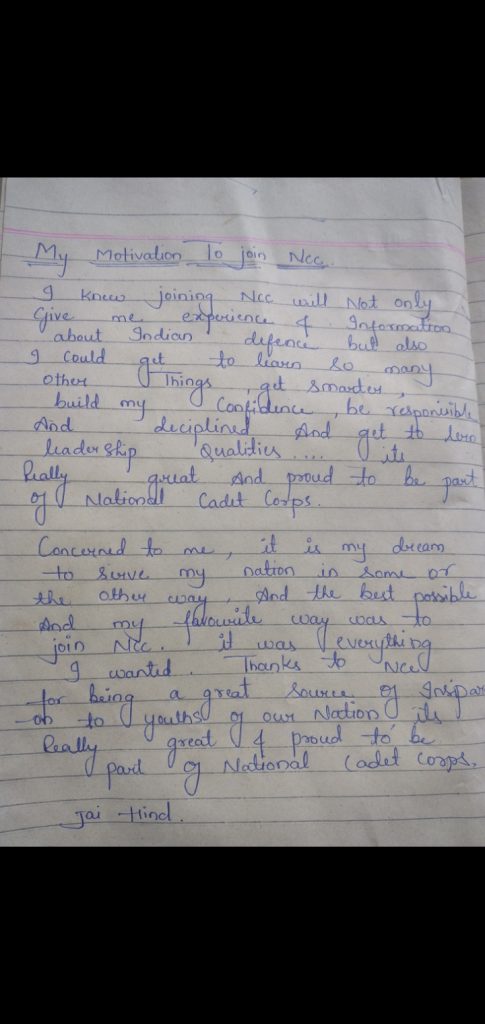 My Motivation To join Ncc.
I knew joining Ncc will Not only
Give me experience & Information
about Indian defence but also
I could get to learn so many
other Things, get smarter,
build my Confidence, be responsible
And deciplined And get to lern
leadership Qualities.... its
Really great And proud to be part
of National Cadet Corps.
Concerned to me, it is my dream
to serve my nation in some or
the other way, And the best possible
And my favourite way was to
join Ncc. it was everything
I wanted. Thanks to Ncc
for being a great source of Inspirat
-on to youths of our Nation its
Really great & proud to be
part of National Cadet Corps.
Jai Hind.